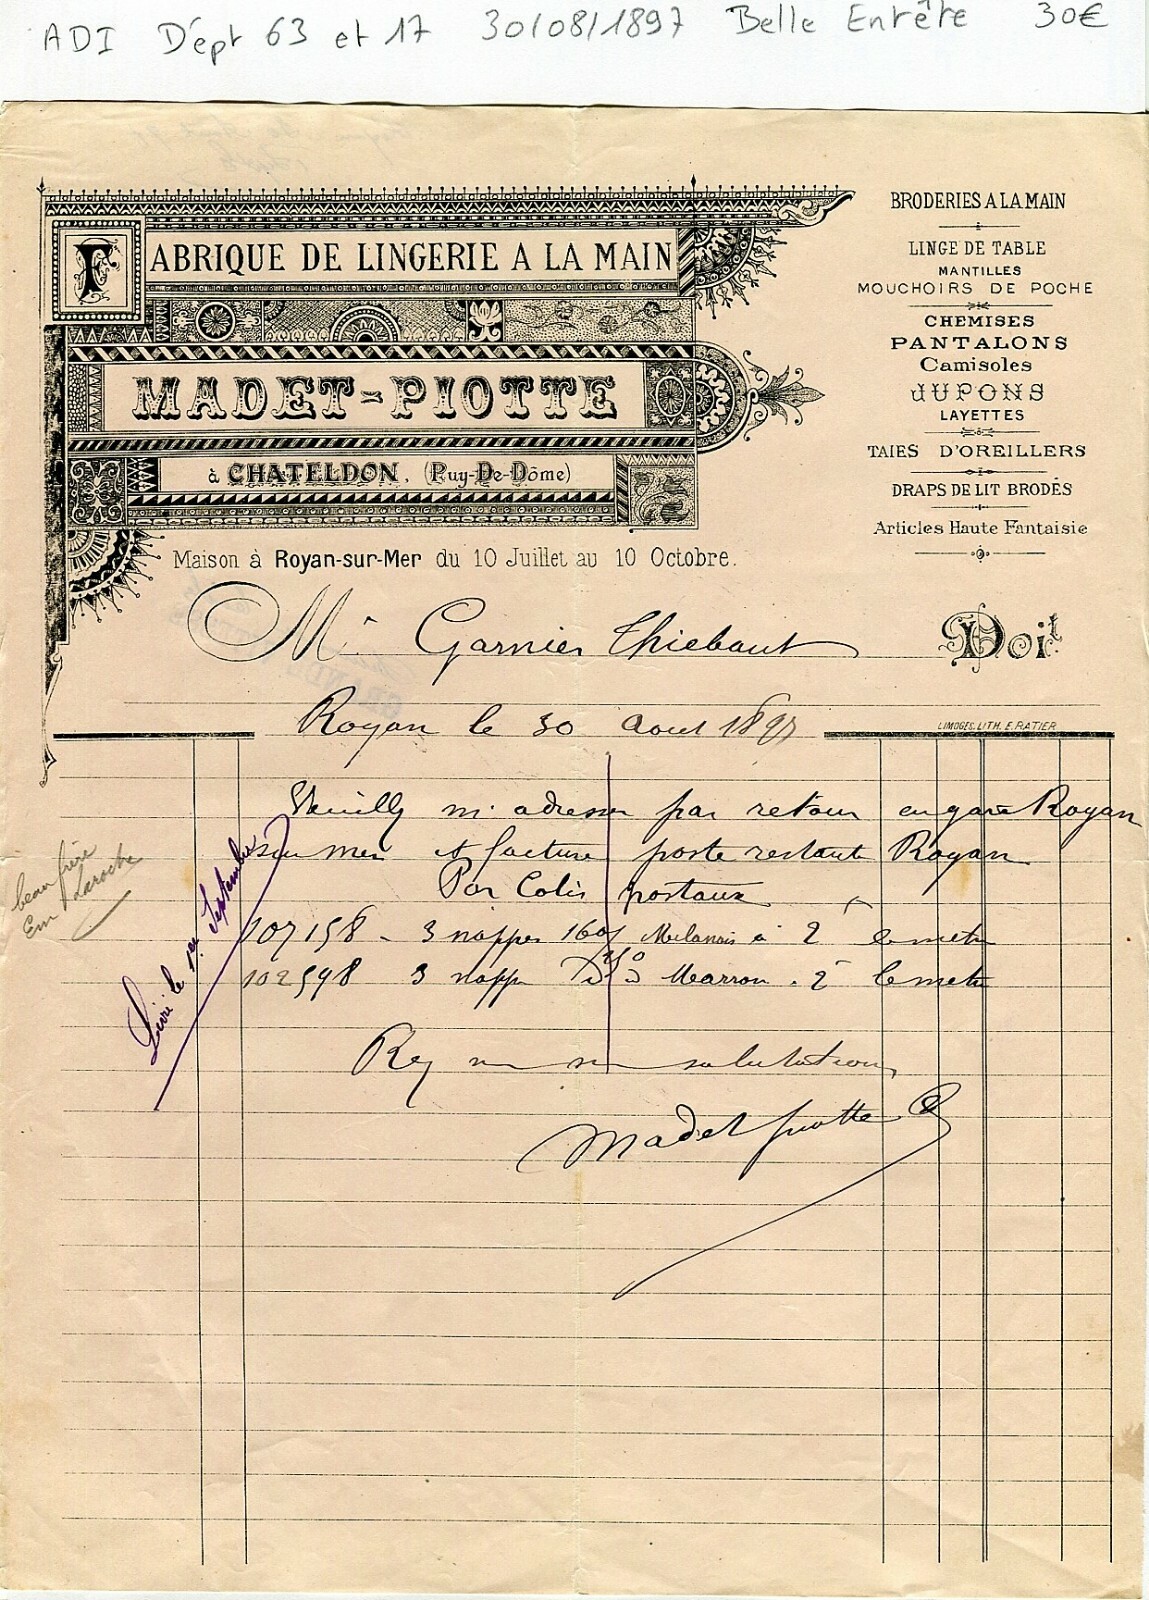 ADI Dépt 63 et 17 30/08/1897 Belle Entête 30€
FABRIQUE DE LINGERIE A LA MAIN
MADET-PIOTTE
à CHATELDON, (Puy-De-Dôme)
Maison à Royan-sur-Mer du 10 Juillet au 10 Octobre.
BRODERIES A LA MAIN
LINGE DE TABLE
MANTILLES
MOUCHOIRS DE POCHE
CHEMISES
PANTALONS
Camisoles
JUPONS
LAYETTES
TAIES D'OREILLERS
DRAPS DE LIT BRODÉS
Articles Haute Fantaisie
Mr Garnier Thiebaut Doit
Royan le 30 Aout 1897
LIMOGES. LITH. E. RATIER
Veuilly m'adresser par retour en gare Royan
sur mer et facture poste restante Royan
Par Colis postaux
107158 - 3 nappes 160/ Milanais à 2 le metre
102598 3 napp d° Marron . 2 le metre
salutations
Madet piotte
Livré le 1er Septembre
beau frère
Em Laroche